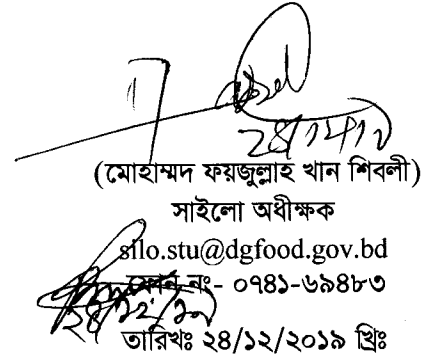 (মোহাম্মদ ফয়জুল্লাহ খান শিবলী)
সাইলো অধীক্ষক
silo.stu@dgfood.gov.bd
ফোন নং- ০৭৪১-৬৯৪৮৩
তারিখঃ ২৪/১২/২০১৯ খ্রিঃ